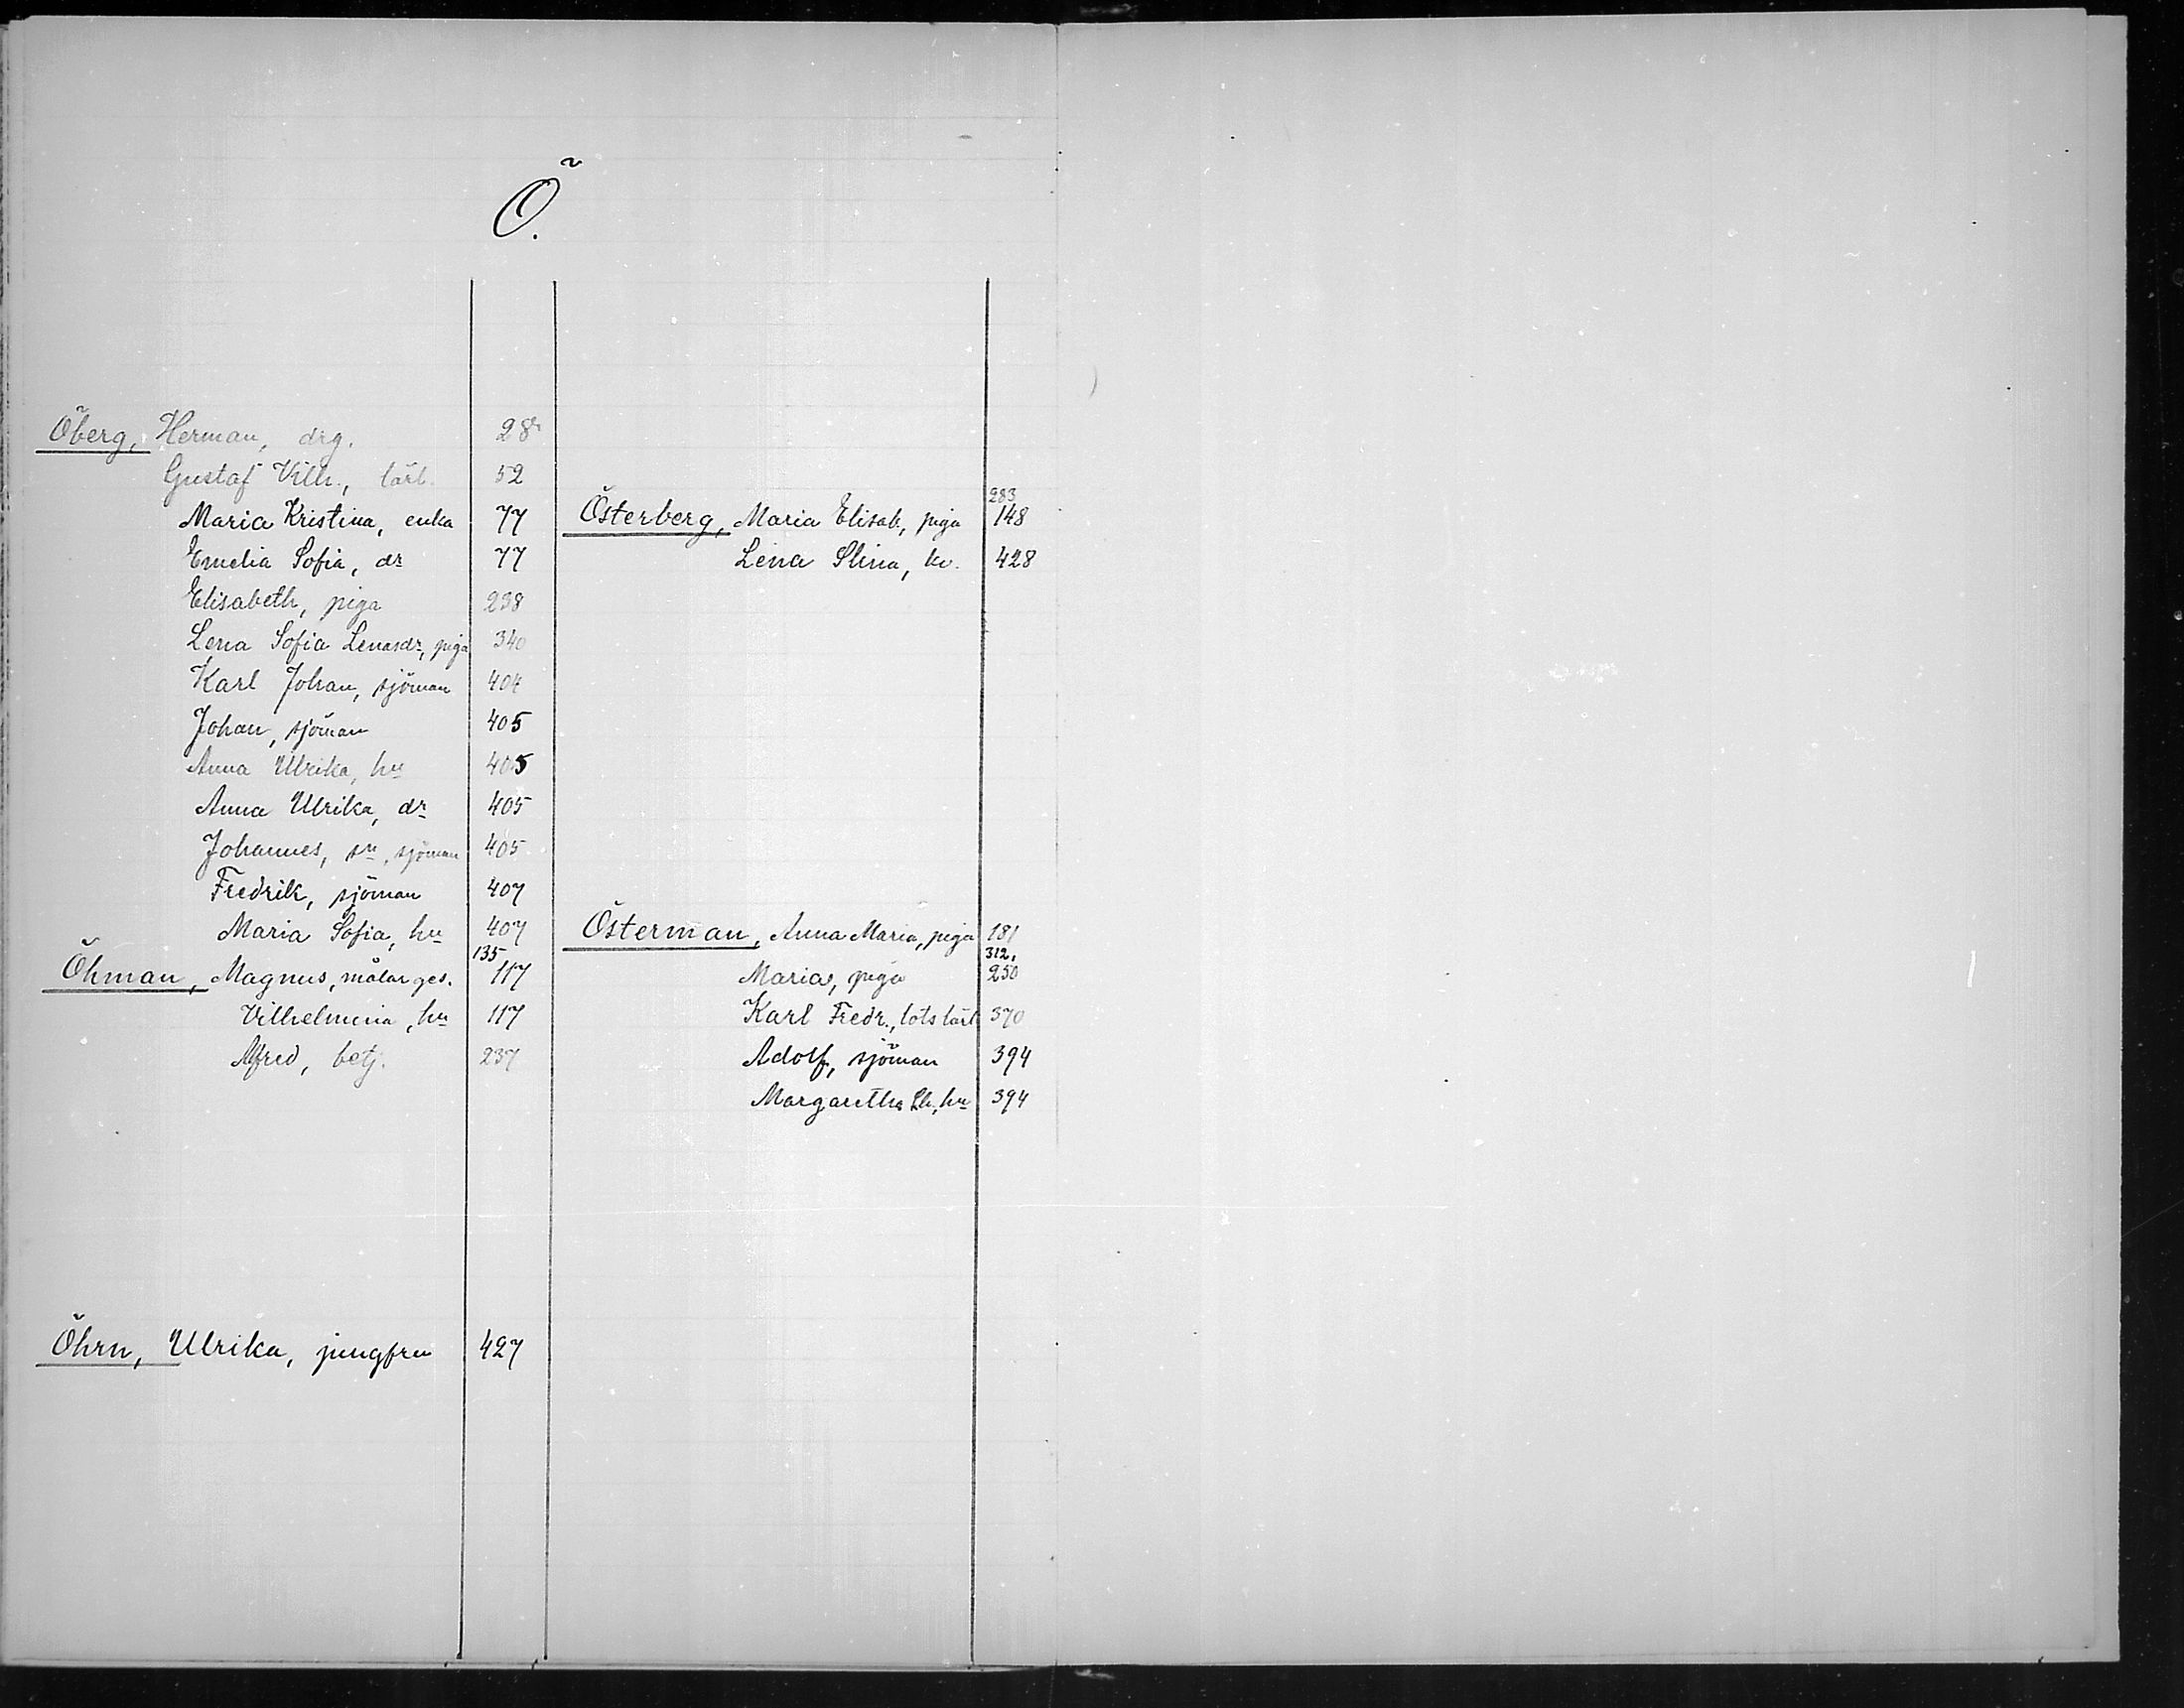 Ö.
Öberg, Herman, drg. 28
Gustaf Vilh., lärl. 52
Maria Kristina, enka 77
Emelia Sofia, dr 77
Elisabeth, piga 238
Lena Sofia Lenasdr, piga 340
Karl Johan, sjöman 404
Johan, sjöman 405
Anna Ulrika, hu 405
Anna Ulrika, dr 405
Johannes, sn, sjöman 405
Fredrik, sjöman 407
Maria Sofia, hu 407
135
Öhman, Magnus, målar ges. 117
Vilhelmina, hu 117
Alfred, betj. 237
Öhrn, Ulrika, jungfru 427
283
Österberg, Maria Elisab., piga 148
Lena Stina, kv. 428
Österman, Anna Maria, piga 181
312.
Maria, piga 250
Karl Fredr., lots lärl 370
Adolf, sjöman 394
Margaretha, hu 394